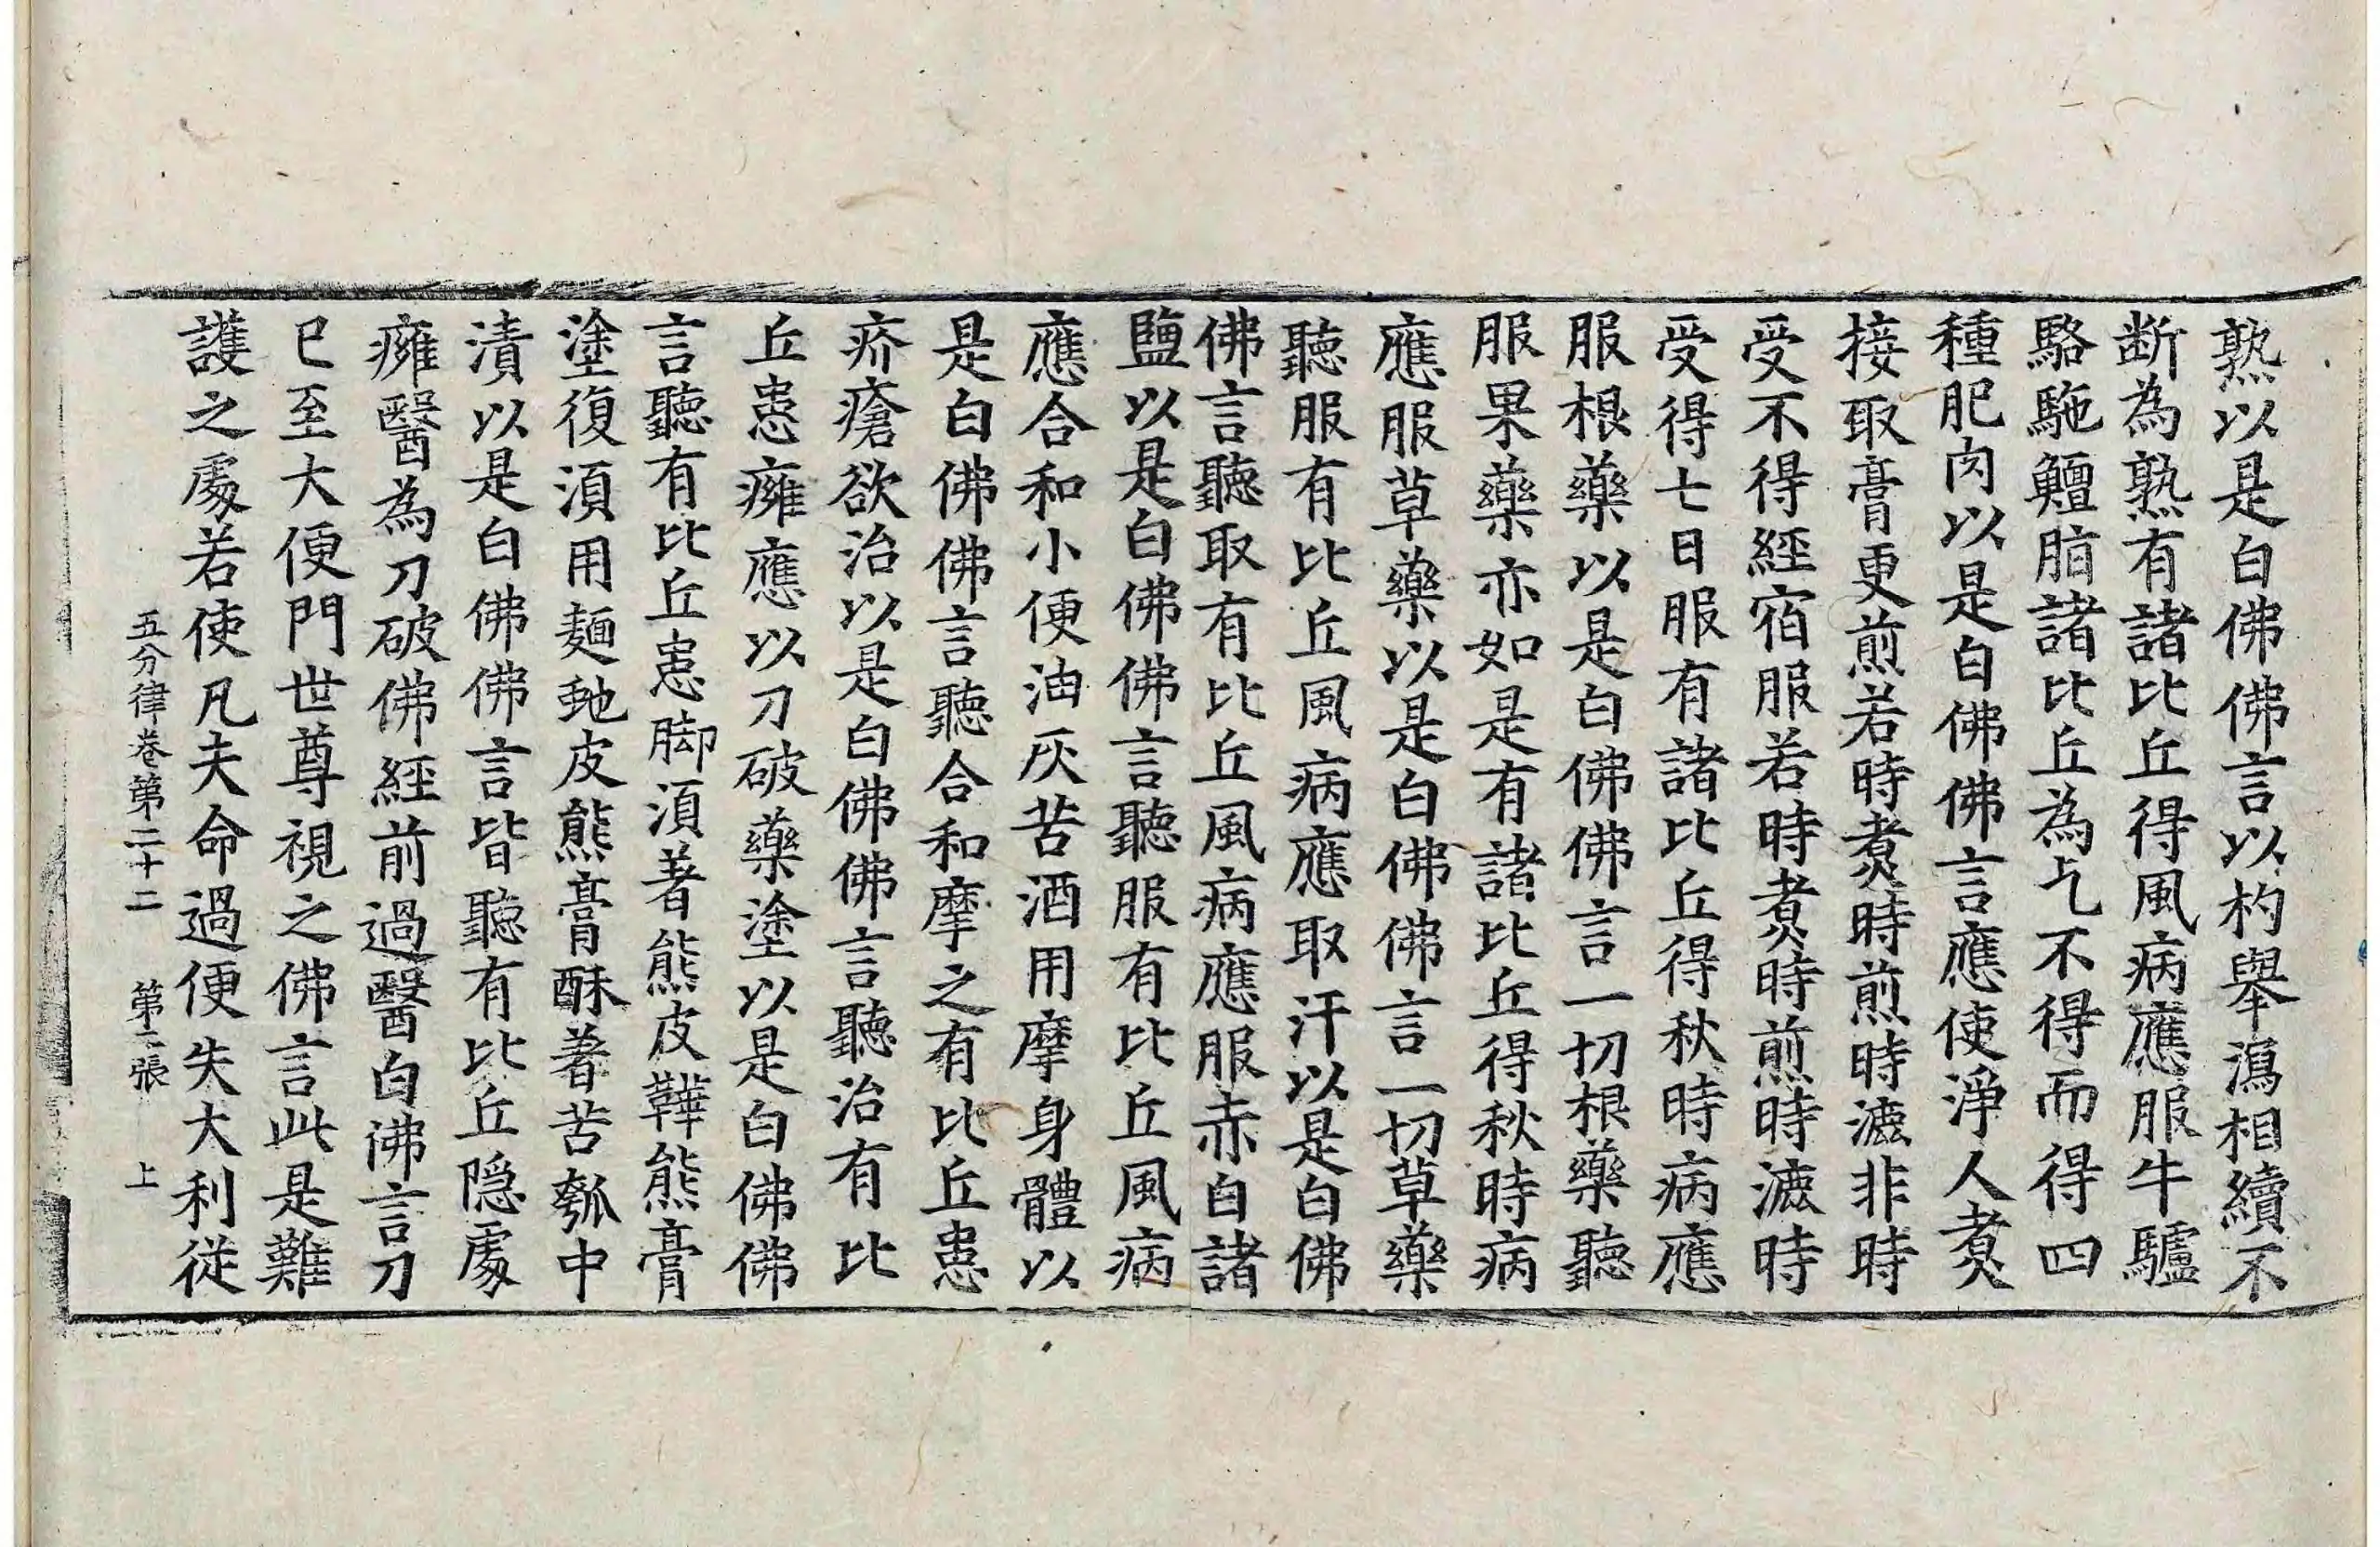 熟以是白佛佛言以杓舉瀉相續不
断為熟有諸比丘得風病應服牛驢
駱駞鱣脂諸比丘為乞不得而得四
種肥肉以是白佛佛言應使淨人煑
接取膏更煎若時煑時煎時漉非時
受不得經宿服若時煑時煎時漉時
受得七日服有諸比丘得秋時病應
服根藥以是白佛佛言一切根藥聽
服果藥亦如是有諸比丘得秋時病
應服草藥以是白佛佛言一切草藥
聽服有比丘風病應取汗以是白佛
佛言聽取有比丘風病應服赤白諸
鹽以是白佛佛言聽服有比丘風病
應合和小便油灰苦酒用摩身體以
是白佛佛言聽合和摩之有比丘患
疥瘡欲治以是白佛佛言聽治有比
丘患癰應以刀破藥塗以是白佛佛
言聽有比丘患脚湏著熊皮鞾熊膏
塗復湏用麺虵皮熊膏酥著苦瓠中
漬以是白佛佛言皆聽有比丘隠處
癰醫為刀破佛經前過醫白佛言刀
已至大便門世尊視之佛言此是難
護之處若使凡夫命過便失大利從
五分律卷第二十二 第二張 上